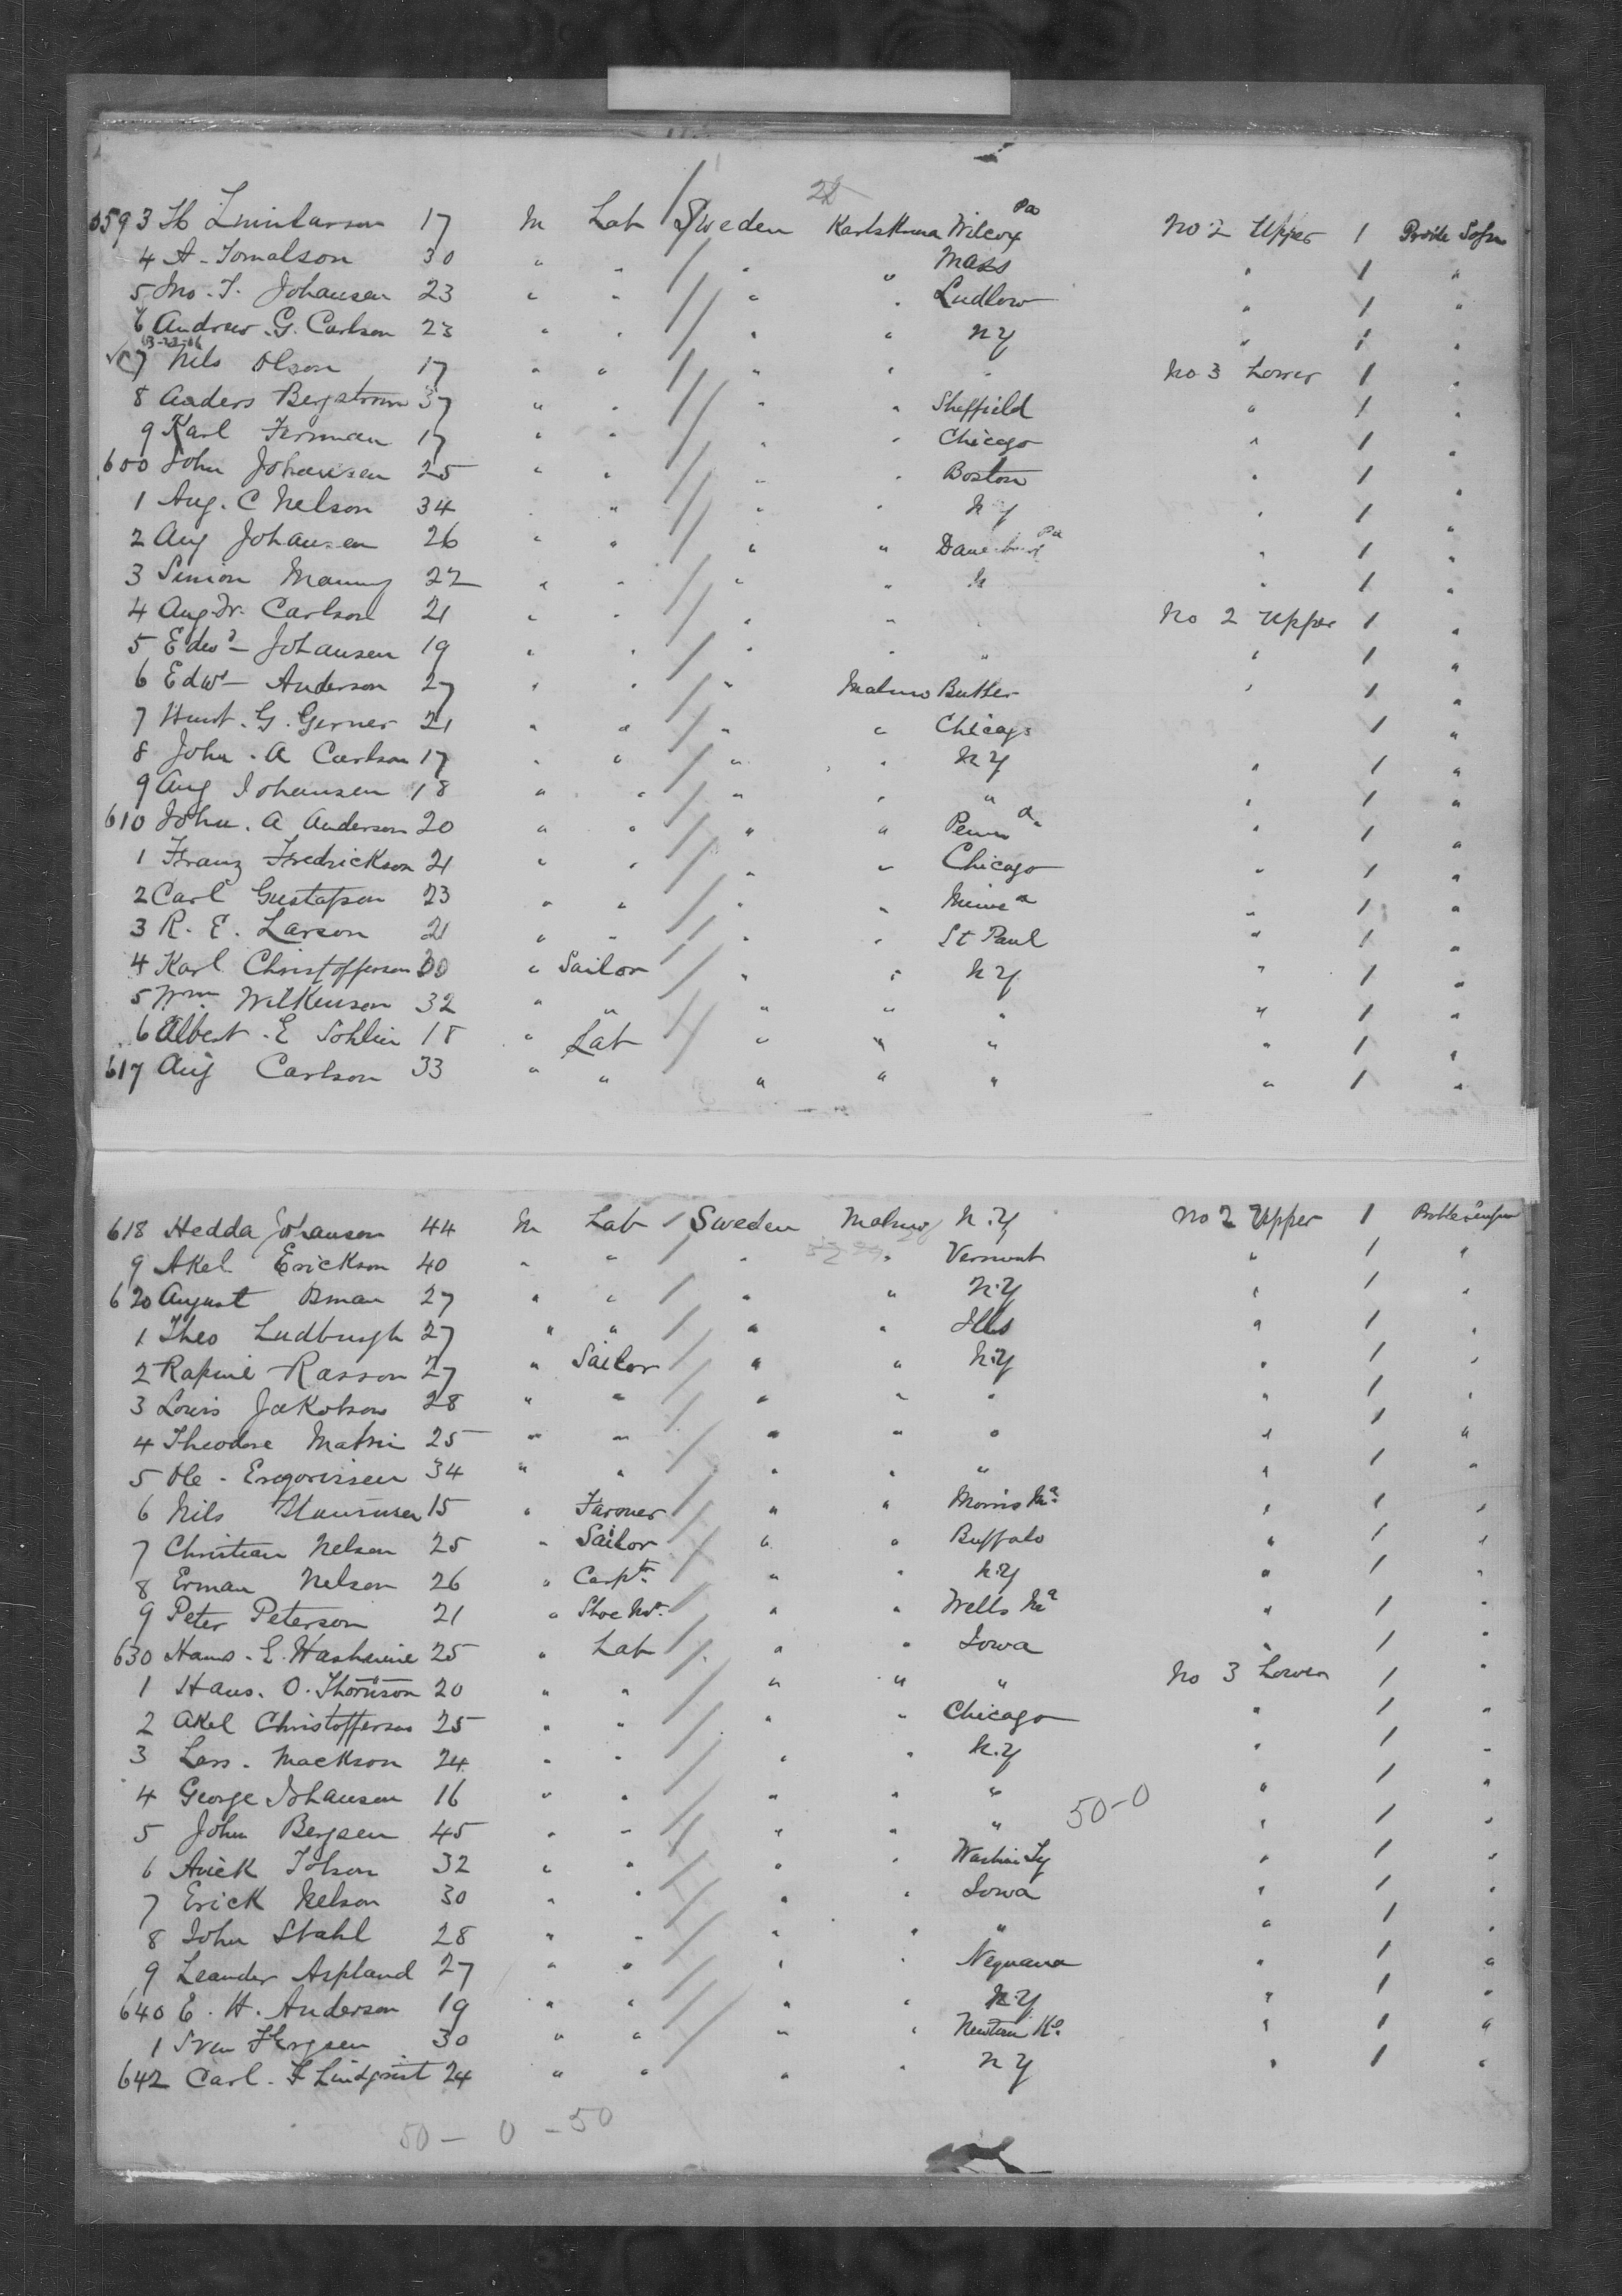 593 17 M Lab Sweden Karlskrona Wilcox Pa No 2 Upper 1
4 A. Tomalson 30 " " " " Mass " 1 "
5 Jno. T. Johansen 23 " " " " Ludlow " 1 "
6 Andrew. G. Carlson 23 " " " " N Y " 1 "
7 Nils Olson 17 " " " " " No 3 Lower 1 "
8 Anders Bergstrom 37 " " " " Sheffield " 1 "
9 Karl 17 " " " " Chicago " 1 "
600 John Johansen 25 " " " " Boston " 1 "
1 Aug. C Nelson 34 " " " " N Y " 1 "
2 Aug Johansen 26 " " " " Pa " 1 "
3 Simon 22 " " " " " 1 "
4 Aug. Carlson 21 " " " " " No 2 Upper 1 "
5 Edwd Johansen 19 " " " " " " 1 "
6 Edwd Anderson 27 " " " Malmo Butler " 1 "
7 G. Gerner 21 " " " " Chicago 1 "
8 John. A Carlson 17 " " " " N Y " 1 "
9 Aug Johansen 18 " " " " " " 1 "
610 John. A Anderson 20 " " " " Penna " 1 "
1 Franz Fredrickson 21 " " " " Chicago " 1 "
2 Carl Gustafson 23 " " " " " 1 "
3 R. E. Larson 21 " " " " St Paul " 1 "
4 Karl Christofferson 30 " Sailor " " N Y " 1 "
5 Wm. Wilkenson 32 " " " " " " 1 "
6 Albert. E Sohlin 18 " Lab " " " " 1 "
617 Aug Carlson 33 " " " " " " 1 "
618 Hedda Johanson 44 M Lab Sweden Malmo N.Y No 2 Upper 1
9 Akel Erickson 40 " " " " Vermont " 1 "
620 August Bman 27 " " " " N.Y " 1 "
1 Theo Ludburgh 27 " " " " Ills " 1 "
2 Rasson 27 " Sailor " " N.Y " 1 "
3 Louis Jakobson 28 " " " " " " 1 "
4 Theodore 25 " " " " " " 1 "
5 Ole. 34 " " " " " " 1 "
6 Nils 15 " Farmer " " Morris Ma. " 1 "
7 Christian Nelson 25 " Sailor " " Buffalo " 1 "
8 Erman Nelson 26 " Carptr. " " N.Y " 1 "
9 Peter Peterson 21 " " " Wells Ma " 1 "
630 Hans. E. 25 " Lab " " Iowa " 1 "
1 Hans. O. Thornson 20 " " " " " No 3 Lower 1 "
2 Akel Christofferson 25 " " " " Chicago " 1 "
3 Lars. Mackson 24 " " " " N.Y " 1 "
4 George Johansen 16 " " " " " " 1 "
5 John Bergsen 45 " " " " " 50-0 " 1 "
6 Avick Tolson 32 " " " " " 1 "
7 Erick Nelson 30 " " " " Iowa " 1 "
8 John Stahl 28 " " " " " " 1 "
9 Leander Aspland 27 " " " " " 1 "
640 E. H. Anderson 19 " " " " N.Y " 1 "
1 Sven 30 " " " " " 1 "
642 Carl. F Lindqvist 24 " " " " N Y " 1 "
50 - 0 - 50